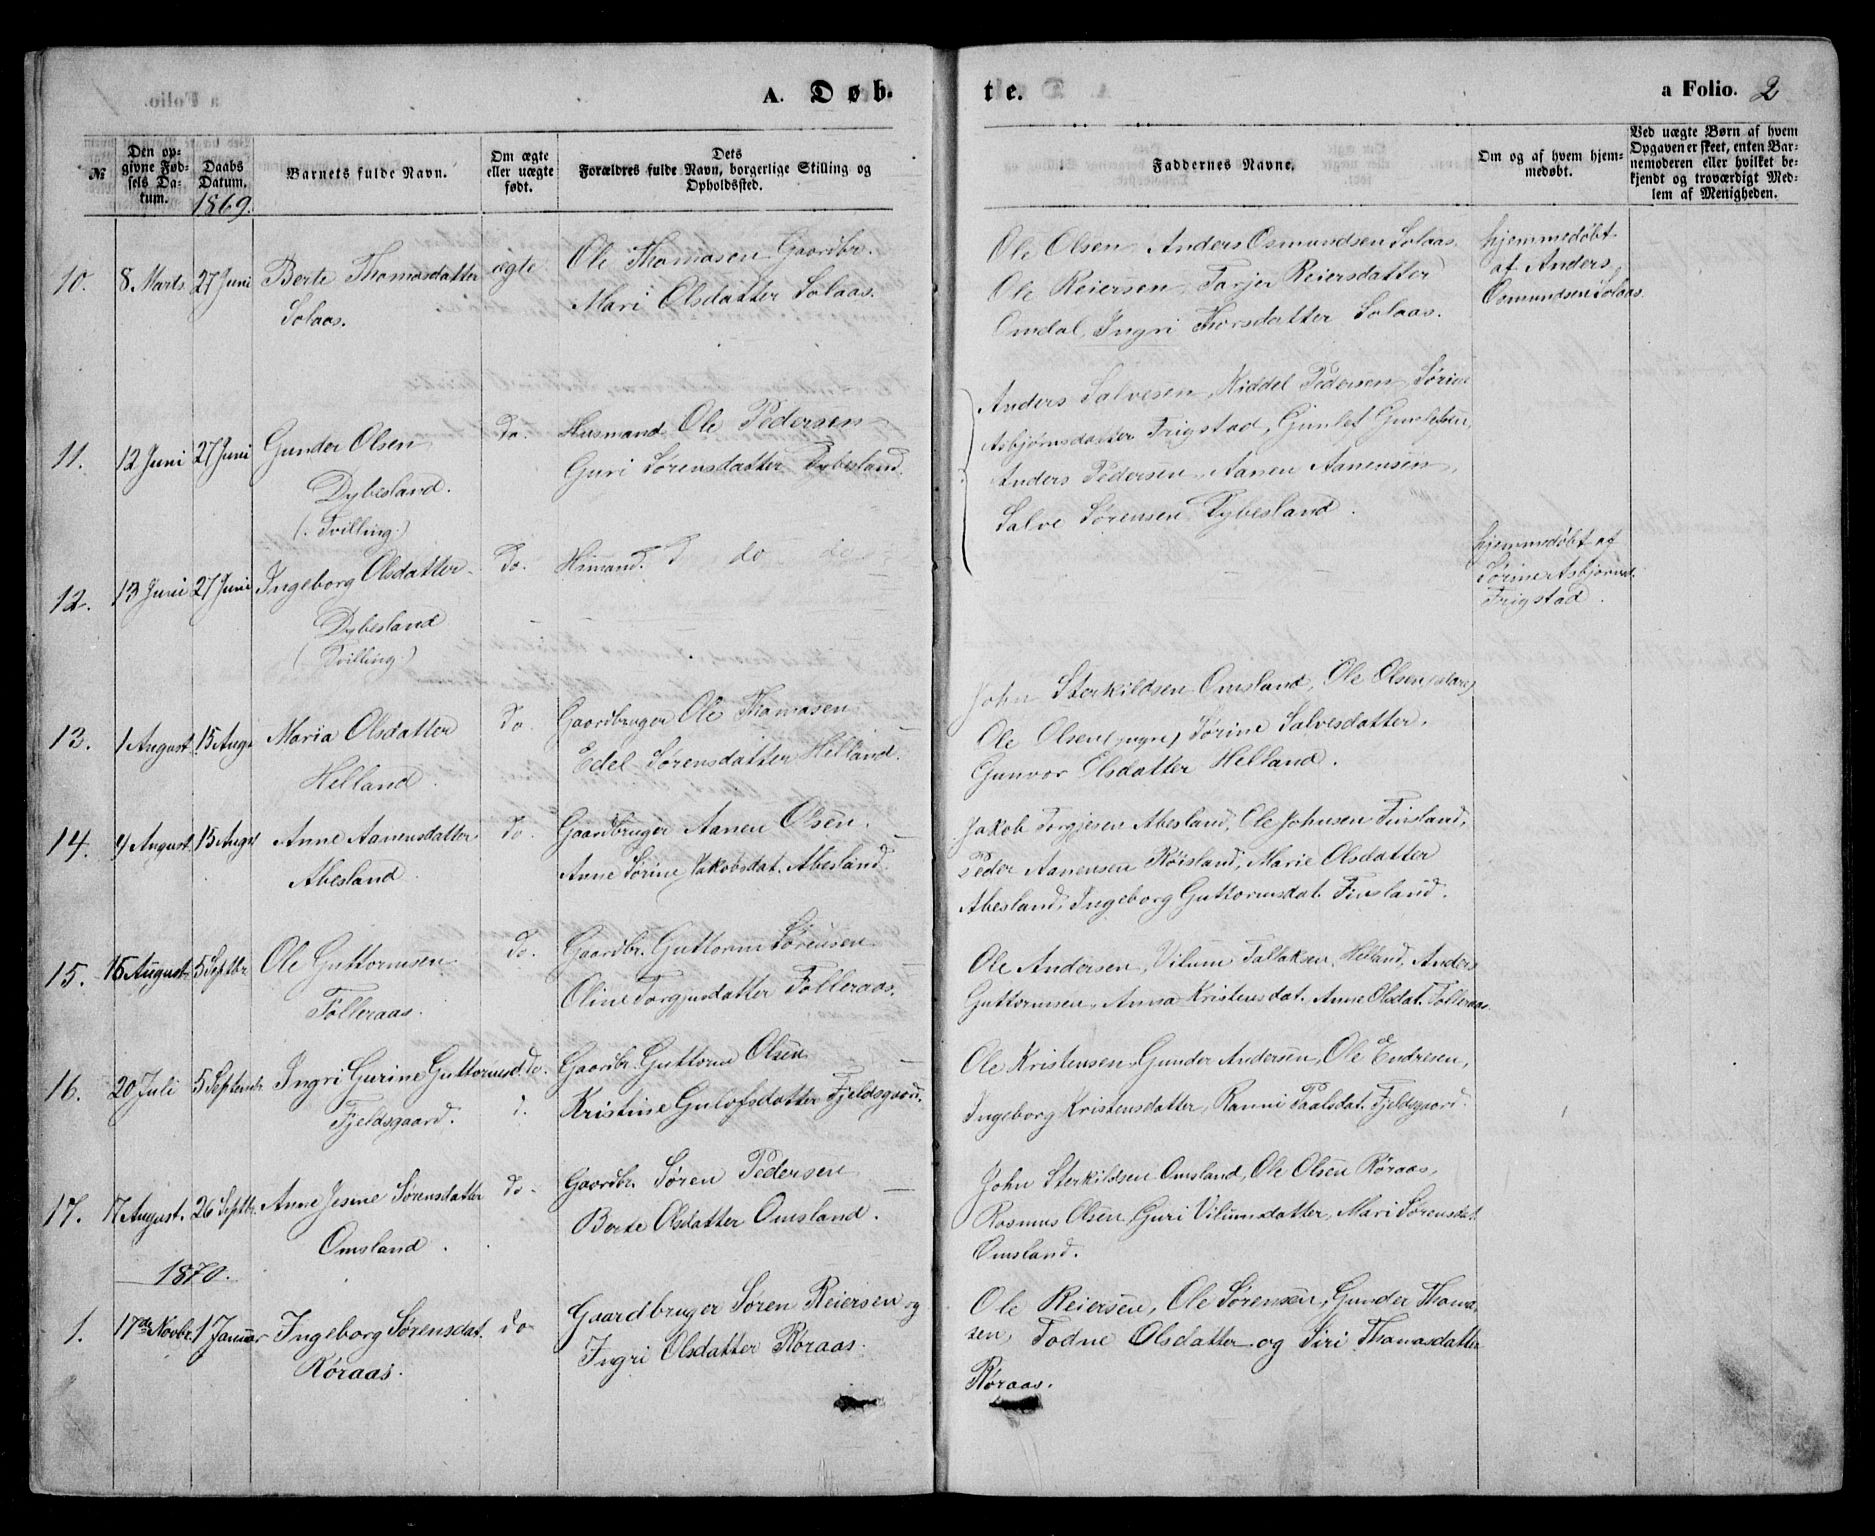 A. Døb-
te.
a Folio. 2
№
Den op-
givne Fød-
sels Da-
tum.
Daabs
Datum.
1869.
Barnets fulde Navn.
Om ægte
eller uægte
født.
Dets
Forældres fulde Navn, borgerlige Stilling og
Opholdssted.
Faddernes Navne.
Om og af hvem hjem-
medøbt.
Ved uægte Børn af hvem
Opgaven er skeet, enten Bar-
nemoderen eller hvilket be-
kjendt og troværdigt Med-
lem af Menigheden.
10. 8 Marts 27 Juni Berte Thomasdatter ægte Ole Thomasen Gaardbr.
Solaas. Mari Olsdatter Solaas.
Ole Olsen, Anders Osmundsen Solaas
Ole Reiersen, Tarjer Reiersdatter
Omdal, Ingri Thorsdatter Solaas.
hjemmedøbt
af Anders
Osmundsen Solaas
11. 12 Juni 27 Juni Gunder Olsen do. Husmand Ole Pedersen
Dybesland. Guri Sørensdatter Dybesland.
(Tvilling)
Anders Salvesen, Siddel Pedersen, Sørine
Asbjørnsdatter Frigstad, Gunlef Gunlefsen,
Anders Pedersen, Aanen Aanensen,
Salve Sørensen Dybesland.
12. 13 Juni 27 Juni Ingeborg Olsdatter do. do
Dybesland
(Tvilling)
hjemmedøbt af
Sørine Asbjørnsd.
Frigstad.
13. 1 August 15 Augu Maria Olsdatter do. Gaardbruger Ole Thomasen
Helland. Edel Sørensdatter Helland.
John Sterkildsen Omsland, Ole Olsen
Ole Olsen (yngre) Sørine Salvesdatter,
Gunvor Olsdatter Helland.
14. 4 August 15 Augu Anne Aanensdatter do. Gaardbruger Aanen Olsen.
Abesland. Anne Sørine Jakobsdat. Abesland.
Jakob Torgjesen Abesland, Ole Johnsen Finsland,
Peder Aanensen Røisland, Marie Olsdatter
Abesland, Ingeborg Guttormsdat. Finsland.
15. 15 August 5 Septbr Ole Guttormsen do. Gaardbr. Guttorm Sørensen
Følleraas. Oline Torgjusdatter Følleraas.
Ole Andersen, Vilum Tallaksen Helland, Anders
Guttormsen, Anna Kristensdat. Anne Olsdat. Følleraas.
16. 20 Juli 5 Septembr Ingri Gurine Guttormsd do. Gaardbr. Guttorm Olsen
Fjeldsgaard. Kristine Gulofsdatter Fjeldsgaard.
Ole Kristensen, Gunder Andersen, Ole Endresen,
Ingeborg Kristensdatter, Ranni Paalsdat. Fjeldsgaard.
17. 17 August. 26 Septbr. Anne Jesine Sørensdatter do. Gaardbr. Søren Pedersen
Omsland. Berte Olsdatter Omsland.
John Sterkildsen Omsland, Ole Olsen Røraas,
Rasmus Olsen, Guri Vilumsdatter, Mari Sørensdat.
Omsland.
1870.
1. 17de Novbr. 1 Januar Ingeborg Sørensdat. do Gaardbruger Søren Reiersen og
Røraas. Ingri Olsdatter Røraas.
Ole Reiersen, Ole Sørensen, Gunder Thoma-
sen, Todne Olsdatter og Siri Thomasdatter
Røraas.